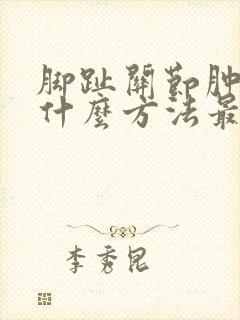 脚趾關節肿
什麼方法最
李秀昆